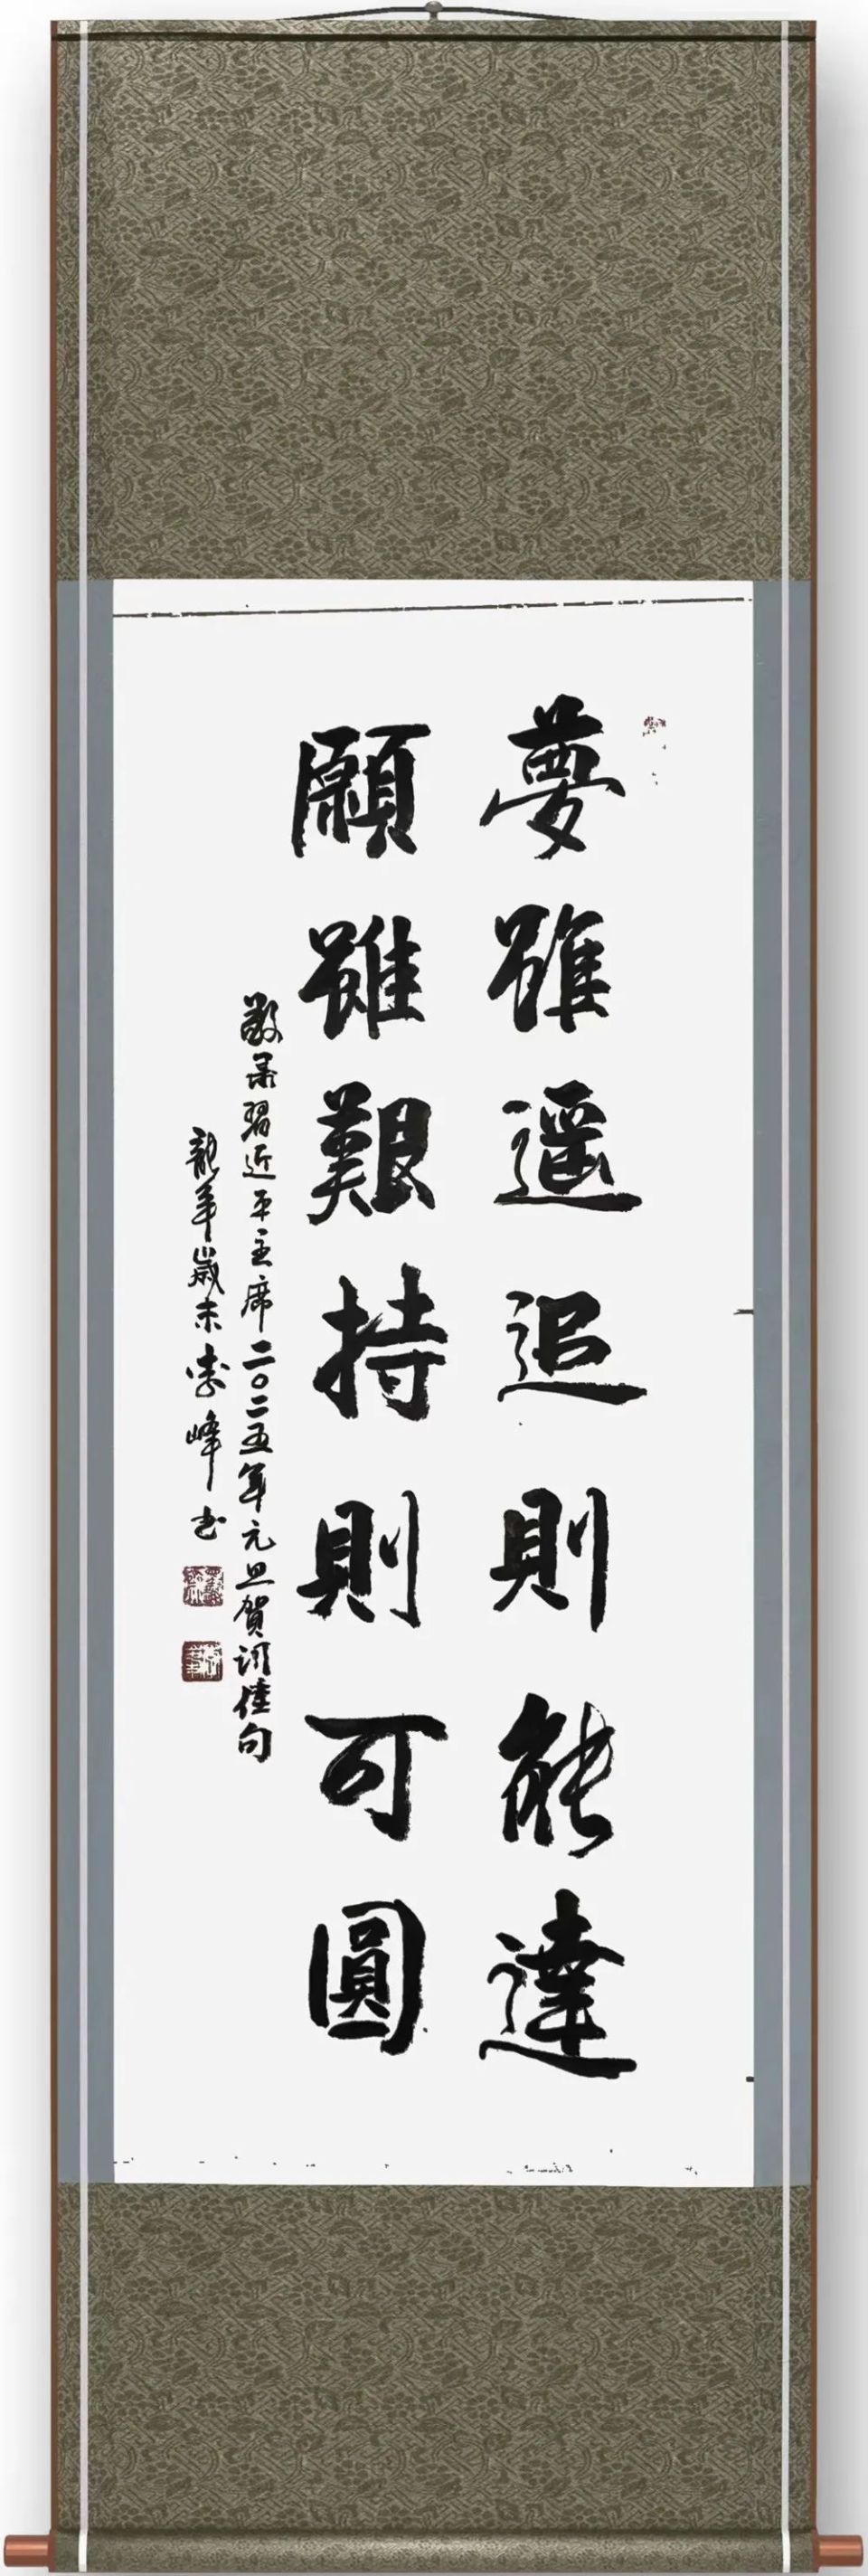 夢雖遥追則能達
願雖艱持則可圓
敬录習近平主席二〇二五年元旦賀词佳句
龍年歲末李峰书